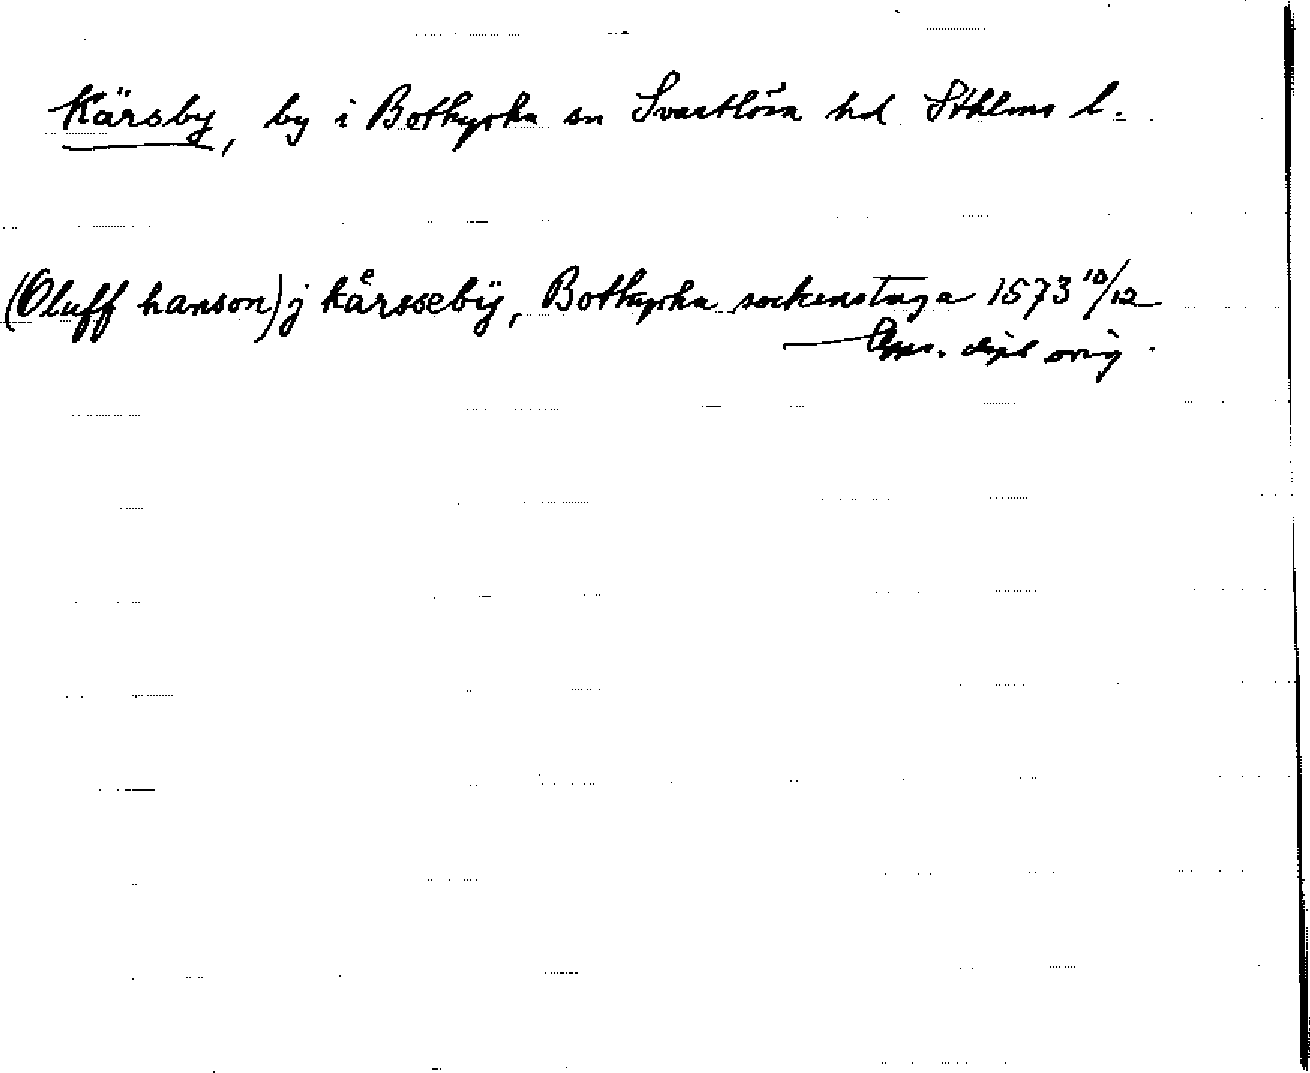 Kärsby, by i Botkyrka sn Svartlösa hd Sthlms l.
(Oluff hanson) j kaͤrssebÿ, Botkyrka sockenstuga 1573 10/12
— Upps. dipl orig.